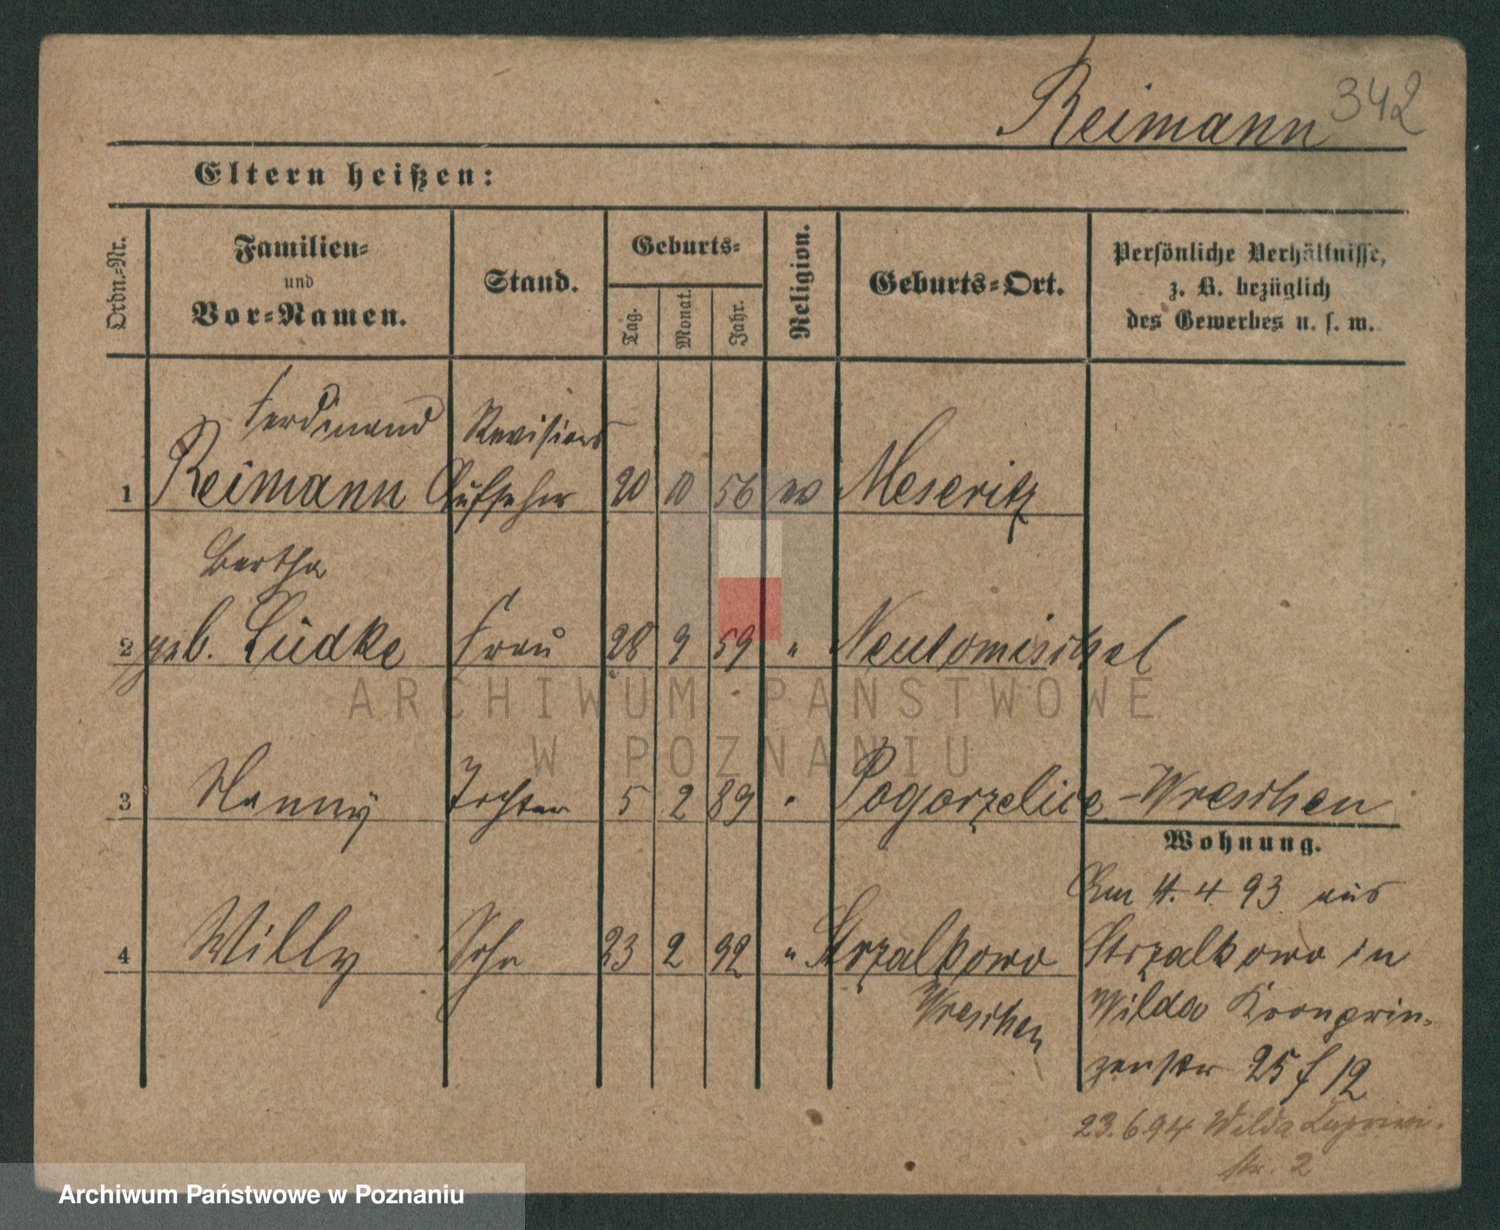 Reimann 342
Eltern heißen:
Ordn.-Nr.
Familien-
und
Vor-Namen.
Stand.
Geburts-
Tag.
Monat.
Jahr.
Religion.
Geburts-Ort.
Persönliche Verhältnisse,
z. B. bezüglich
des Gewerbes u. s. w.
Ferdinand Revisions
1 Reimann Aufseher 20 10 56 ev Meseritz
Bertha
2 geb. Lüdke Frau 28 9 59 " Neutomischel
3 Nanny Tochter 5 2 89 " Pogorzelice - Wreschen
Wohnung.
Am 4. 4. 93 aus
4 Willy Sohn 23 2 92 " Strzalkowo
Wreschen
Strzalkowo in
Wilda Kronprin-
zenstr 25 f 12
23.6.94 Wilda Caprivi-
str. 2
ARCHIWUM PAŃSTWOWE
W POZNANIU
Archiwum Państwowe w Poznaniu